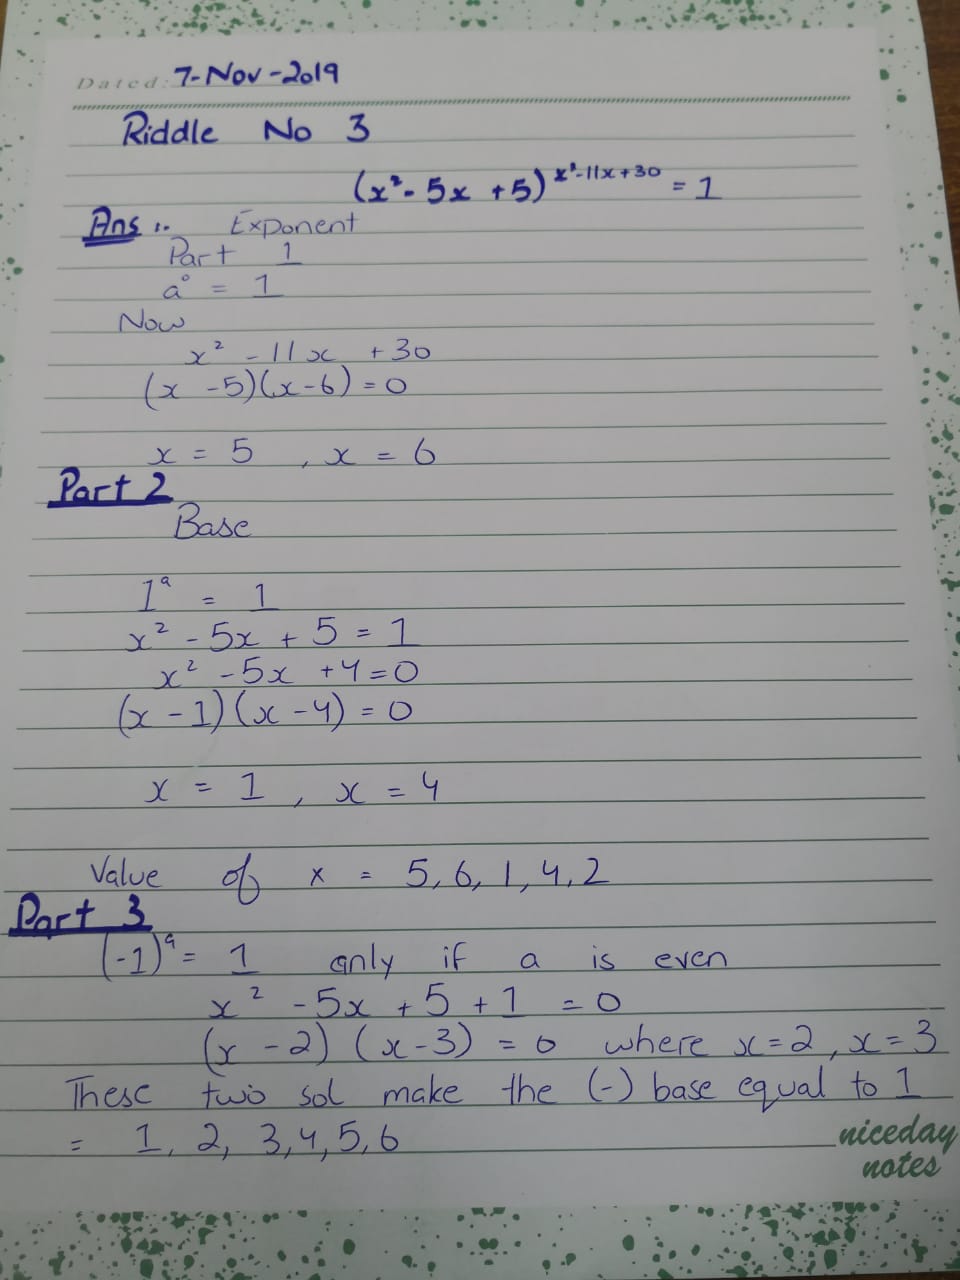 Dated: 7-Nov-2019
Riddle No 3
(x²-5x+5)^x²-11x+30 = 1
Ans :- Exponent
Part 1
a° = 1
Now
x² - 11x + 30
(x - 5)(x - 6) = 0
x = 5 , x = 6
Part 2
Base
1^a = 1
x² - 5x + 5 = 1
x² - 5x + 4 = 0
(x - 1)(x - 4) = 0
x = 1 , x = 4
Value of x = 5, 6, 1, 4, 2
Part 3
(-1)^a = 1 only if a is even
x² - 5x + 5 + 1 = 0
(x - 2) (x - 3) = 0 where x = 2, x = 3
These two sol make the (-) base equal to 1
= 1, 2, 3, 4, 5, 6
niceday
notes